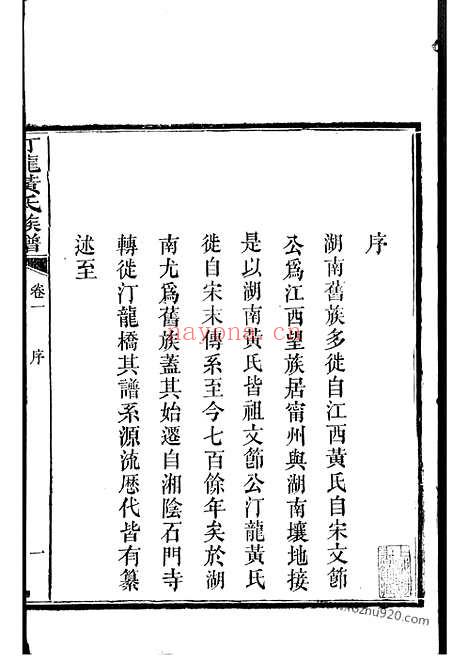 序
湖南舊族多徙自江西黃氏自宋文節
公爲江西望族居甯州與湖南壤地接
是以湖南黃氏皆祖文節公汀龍黃氏
徙自宋末傳系至今七百餘年矣於湖
南尤爲舊族蓋其始遷自湘陰石門寺
轉徙汀龍橋其譜系源流歷代皆有纂
述至
汀龍黃氏族譜
卷一
序
一
nayona.cn